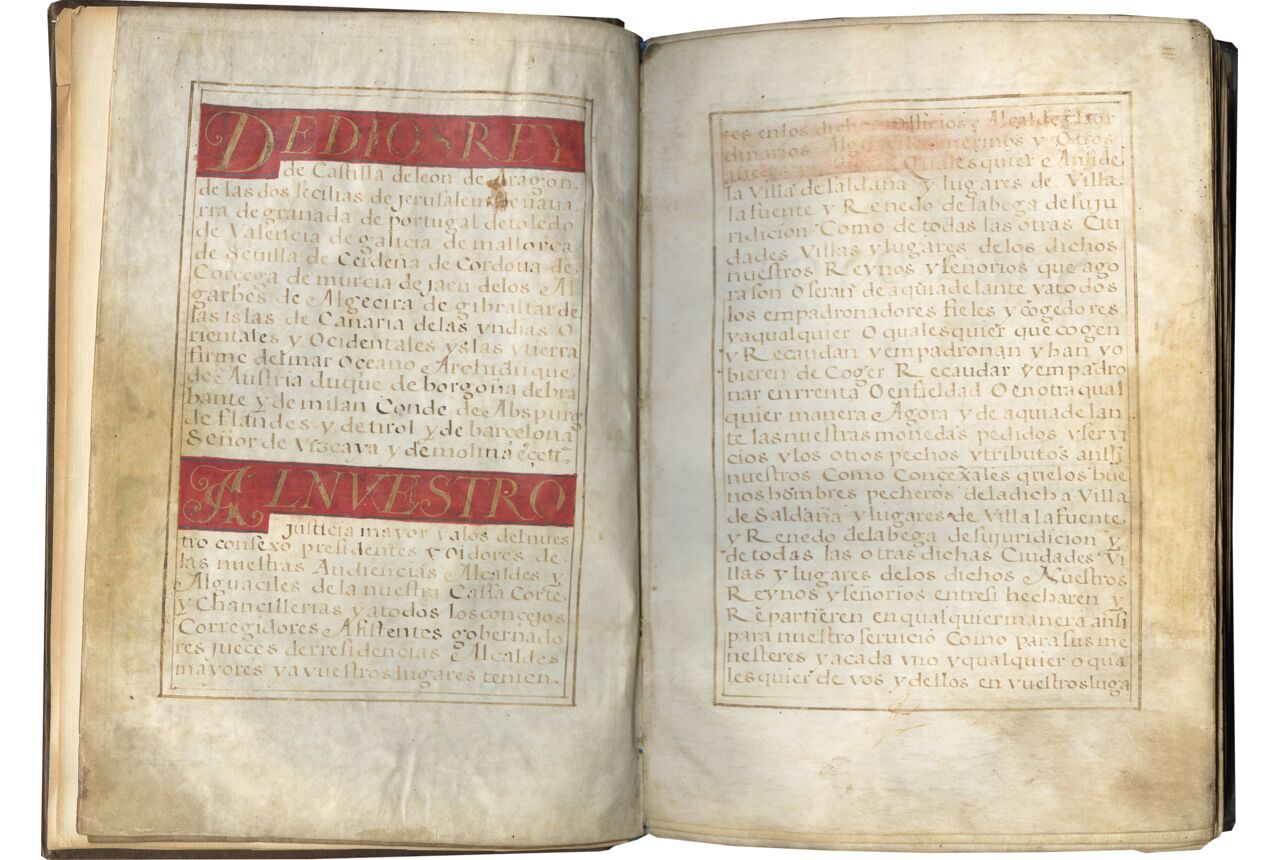 DEDIOS REY
de Castilla deleon de Aragon.
de las dos secilias de jerusalen denaua
rra de granada de portugal detoledo
de Valencia de galicia de mallorca
de Sevilla de Cerdeña de Cordoua de
Corcega de murcia de jaen delos Al
garbes de Algecira de gibraltar de
las islas de Canaria delas yndias O
rientales y Ocidentales yslas ytierra
firme del mar Oceano Archiduque
de Austria duque de borgoña debra
bante y de milan Conde de Abspurg
de flandes y de tirol y de barcelona
Señor de Vizcaya y de molina
ALNVESTRO
Justicia mayor yalos delnues
tro consexo presidentes y Oidores de
las nuestras Audiencias Alcaldes y
Alguaciles de la nuestra Cassa Corte
y Chancillerias yatodos losconcejos
Corregidores Asistentes gobernado
res jueces derresidencias e Alcaldes
mayores yavuestroslugares tenien.
tes enlos dichos Officios e Alcaldes hor
dinarios merinos y Otros
Quales quier Ansi de
la Villa de saldaña y lugares de Villa
lafuente y Renedo delabega desuju
ridicion Como de todas las otras Ciu
dades Villas ylugares delos dichos
nuestros Reynos yseñorios que ago
rason Oseran de aquiadelante yatodos
los empadronadores fieles y cogedores
yaqualquier O qualesquier que cogen
y Recaudan yempadronan yhan yo
bieren de Coger Recaudar yempadro
nar enrrenta Oenfieldad Oenotra qual
quier manera Agora y de aquiadelan
te lasnuestras monedas pedidos yservi
cios ylos otros pechos ytributos ansi
nuestros Como Concexales quelos bue
nos hombres pecheros deladicha Villa
de Saldaña y lugares de Villa lafuente
y Renedo delabega desujuridicion y
de todas las otras dichas Ciudades Vi
llas y lugares delos dichos Nuestros
Reynos yseñorios entresi hecharen y
Repartieren en qualquiermanera ansi
para nuestro seruicio Como parasusme
nesteres yacada vno yqualquier o qua
lesquier de vos ydellos en vuestrosluga